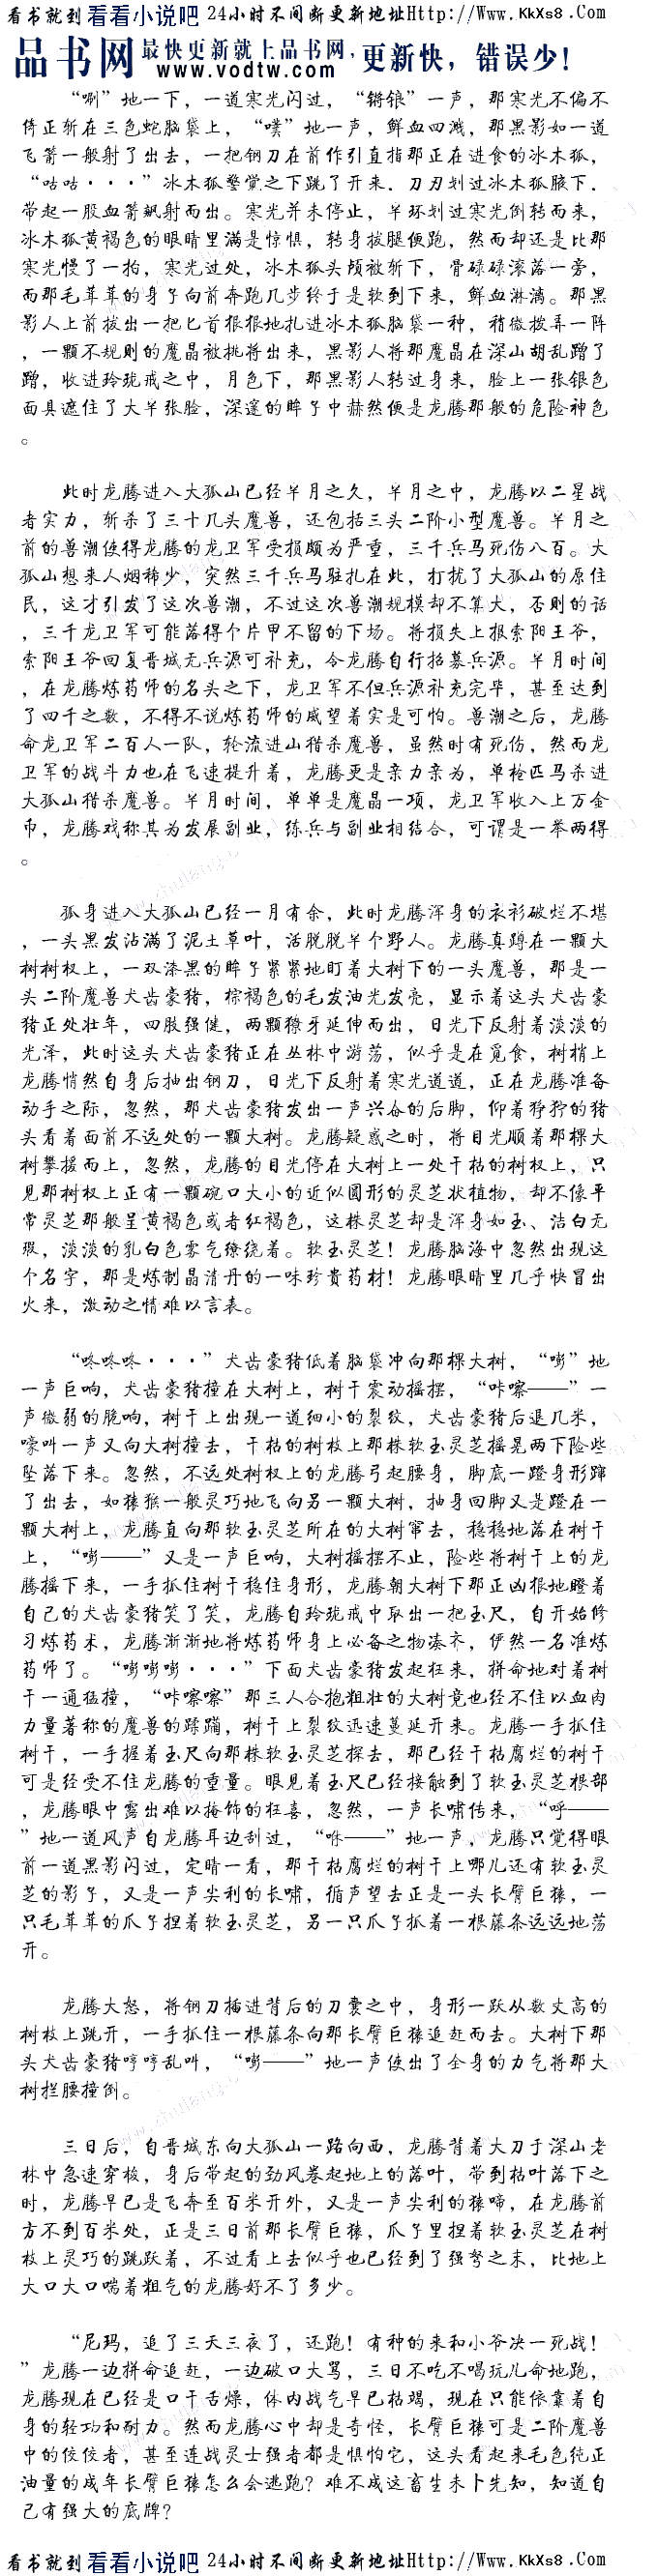 看书就到看看小说吧 24小时不间断更新地址Http://Www.KkXs8.Com
品书网 最快更新就上品书网，更新快，错误少！
www.vodtw.com
“唰”地一下，一道寒光闪过，“锵锒”一声，那寒光不偏不
倚正斩在三色蛇脑袋上，“噗”地一声，鲜血四溅，那黑影如一道
飞箭一般射了出去，一把钢刀在前作引直指那正在进食的冰木狐，
“咕咕···”冰木狐警觉之下跳了开来．刀刃划过冰木狐腋下．
带起一股血箭飙射而出。寒光并未停止，半环划过寒光倒转而来，
冰木狐黄褐色的眼睛里满是惊惧，转身拔腿便跑，然而却还是比那
寒光慢了一拍，寒光过处，冰木狐头颅被斩下，骨碌碌滚落一旁，
而那毛茸茸的身子向前奔跑几步终于是软到下来，鲜血淋漓。那黑
影人上前拔出一把匕首狠狠地扎进冰木狐脑袋一种，稍微拨弄一阵
，一颗不规则的魔晶被挑将出来，黑影人将那魔晶在深山胡乱蹭了
蹭，收进玲珑戒之中，月色下，那黑影人转过身来，脸上一张银色
面具遮住了大半张脸，深邃的眸子中赫然便是龙腾那般的危险神色
。
此时龙腾进入大孤山已经半月之久，半月之中，龙腾以二星战
者实力，斩杀了三十几头魔兽，还包括三头二阶小型魔兽。半月之
前的兽潮使得龙腾的龙卫军受损颇为严重，三千兵马死伤八百。大
孤山想来人烟稀少，突然三千兵马驻扎在此，打扰了大孤山的原住
民，这才引发了这次兽潮，不过这次兽潮规模却不算大，否则的话
，三千龙卫军可能落得个片甲不留的下场。将损失上报索阳王爷，
索阳王爷回复晋城无兵源可补充，令龙腾自行招募兵源。半月时间
，在龙腾炼药师的名头之下，龙卫军不但兵源补充完毕，甚至达到
了四千之数，不得不说炼药师的威望着实是可怕。兽潮之后，龙腾
命龙卫军二百人一队，轮流进山猎杀魔兽，虽然时有死伤，然而龙
卫军的战斗力也在飞速提升着，龙腾更是亲力亲为，单枪匹马杀进
大孤山猎杀魔兽。半月时间，单单是魔晶一项，龙卫军收入上万金
币，龙腾戏称其为发展副业，练兵与副业相结合，可谓是一举两得
。
孤身进入大孤山已经一月有余，此时龙腾浑身的衣衫破烂不堪
，一头黑发沾满了泥土草叶，活脱脱半个野人。龙腾真蹲在一颗大
树树杈上，一双漆黑的眸子紧紧地盯着大树下的一头魔兽，那是一
头二阶魔兽犬齿豪猪，棕褐色的毛发油光发亮，显示着这头犬齿豪
猪正处壮年，四肢强健，两颗獠牙延伸而出，日光下反射着淡淡的
光泽，此时这头犬齿豪猪正在丛林中游荡，似乎是在觅食，树梢上
龙腾悄然自身后抽出钢刀，日光下反射着寒光道道，正在龙腾准备
动手之际，忽然，那犬齿豪猪发出一声兴奋的后脚，仰着狰狞的猪
头看着面前不远处的一颗大树。龙腾疑惑之时，将目光顺着那棵大
树攀援而上，忽然，龙腾的目光停在大树上一处干枯的树杈上，只
见那树杈上正有一颗碗口大小的近似圆形的灵芝状植物，却不像平
常灵芝那般呈黄褐色或者红褐色，这株灵芝却是浑身如玉、洁白无
瑕，淡淡的乳白色雾气缭绕着。软玉灵芝！龙腾脑海中忽然出现这
个名字，那是炼制晶清丹的一味珍贵药材！龙腾眼睛里几乎快冒出
火来，激动之情难以言表。
“咚咚咚···”犬齿豪猪低着脑袋冲向那棵大树，“嘭”地
一声巨响，犬齿豪猪撞在大树上，树干震动摇摆，“咔嚓——”一
声微弱的脆响，树干上出现一道细小的裂纹，犬齿豪猪后退几米，
嚎叫一声又向大树撞去，干枯的树枝上那株软玉灵芝摇晃两下险些
坠落下来。忽然，不远处树杈上的龙腾弓起腰身，脚底一蹬身形蹿
了出去，如猿猴一般灵巧地飞向另一颗大树，抽身回脚又是蹬在一
颗大树上，龙腾直向那软玉灵芝所在的大树窜去，稳稳地落在树干
上，“嘭——”又是一声巨响，大树摇摆不止，险些将树干上的龙
腾摇下来，一手抓住树干稳住身形，龙腾朝大树下那正凶狠地瞪着
自己的犬齿豪猪笑了笑，龙腾自玲珑戒中取出一把玉尺，自开始修
习炼药术，龙腾渐渐地将炼药师身上必备之物凑齐，俨然一名准炼
药师了。“嘭嘭嘭···”下面犬齿豪猪发起狂来，拼命地对着树
干一通猛撞，“咔嚓嚓”那三人合抱粗壮的大树竟也经不住以血肉
力量著称的魔兽的蹂躏，树干上裂纹迅速蔓延开来。龙腾一手抓住
树干，一手握着玉尺向那株软玉灵芝探去，那已经干枯腐烂的树干
可是经受不住龙腾的重量。眼见着玉尺已经接触到了软玉灵芝根部
，龙腾眼中露出难以掩饰的狂喜，忽然，一声长啸传来，“呼——
”地一道风声自龙腾耳边刮过，“咻——”地一声，龙腾只觉得眼
前一道黑影闪过，定睛一看，那干枯腐烂的树干上哪儿还有软玉灵
芝的影子，又是一声尖利的长啸，循声望去正是一头长臂巨猿，一
只毛茸茸的爪子捏着软玉灵芝，另一只爪子抓着一根藤条远远地荡
开。
龙腾大怒，将钢刀插进背后的刀囊之中，身形一跃从数丈高的
树枝上跳开，一手抓住一根藤条向那长臂巨猿追赶而去。大树下那
头犬齿豪猪哼哼乱叫，“嘭——”地一声使出了全身的力气将那大
树拦腰撞倒。
三日后，自晋城东向大孤山一路向西，龙腾背着大刀于深山老
林中急速穿梭，身后带起的劲风卷起地上的落叶，带到枯叶落下之
时，龙腾早已是飞奔至百米开外，又是一声尖利的猿啼，在龙腾前
方不到百米处，正是三日前那长臂巨猿，爪子里捏着软玉灵芝在树
枝上灵巧的跳跃着，不过看上去似乎也已经到了强弩之末，比地上
大口大口喘着粗气的龙腾好不了多少。
“尼玛，追了三天三夜了，还跑！有种的来和小爷决一死战！
”龙腾一边拼命追赶，一边破口大骂，三日不吃不喝玩儿命地跑，
龙腾现在已经是口干舌燥，体内战气早已枯竭，现在只能依靠着自
身的轻功和耐力。然而龙腾心中却是奇怪，长臂巨猿可是二阶魔兽
中的佼佼者，甚至连战灵士强者都是惧怕它，这头看起来毛色纯正
油量的成年长臂巨猿怎么会逃跑？难不成这畜生未卜先知，知道自
己有强大的底牌？
看书就到看看小说吧 24小时不间断更新地址Http://Www.KkXs8.Com